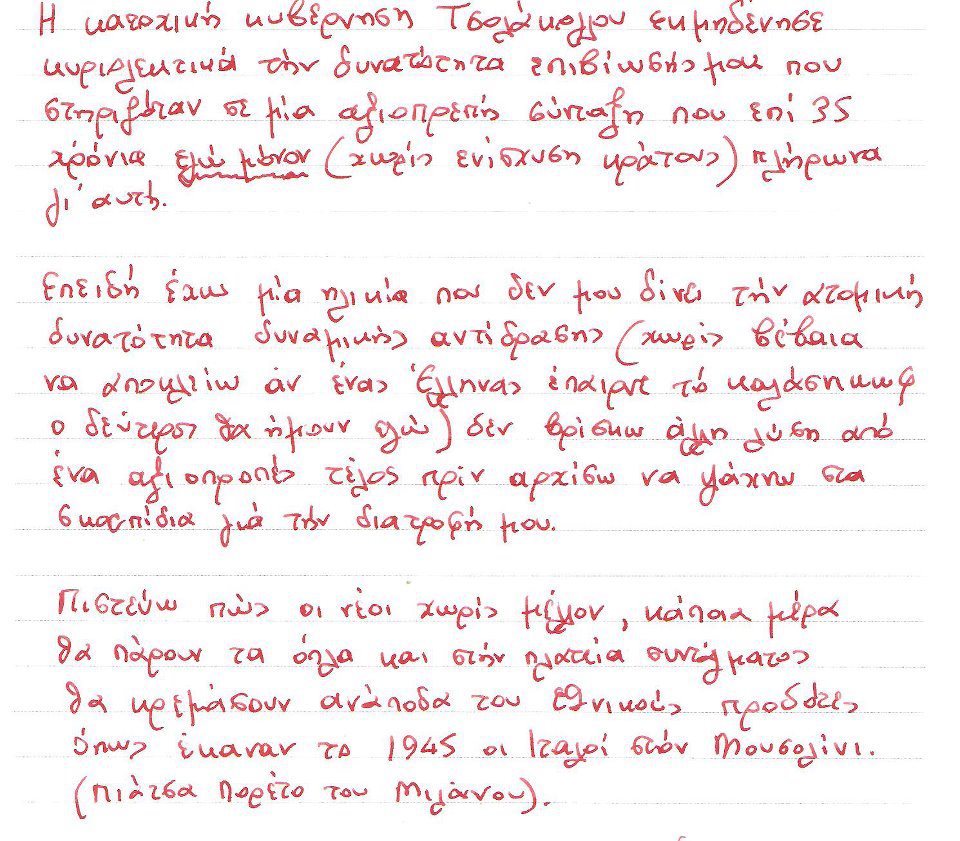 Η κατοχική κυβέρνηση Τσολάκογλου εκμηδένησε
κυριολεκτικά την δυνατότητα επιβίωσής μου που
στηριζόταν σε μία αξιοπρεπή σύνταξη που επί 35
χρόνια εγώ μόνον (χωρίς ενίσχυση κράτους) πλήρωνα
γι' αυτή.
Επειδή έχω μία ηλικία που δεν μου δίνει την ατομική
δυνατότητα δυναμικής αντίδρασης (χωρίς βέβαια
να αποκλείω αν ένας Έλληνας έπαιρνε το καλάσνικωφ
ο δεύτερος θα ήμουν εγώ) δεν βρίσκω άλλη λύση από
ένα αξιοπρεπές τέλος πρίν αρχίσω να ψάχνω στα
σκουπίδια γιά την διατροφή μου.
Πιστεύω πώς οι νέοι χωρίς μέλλον, κάποια μέρα
θα πάρουν τα όπλα και στην πλατεία συντάγματος
θα κρεμάσουν ανάποδα τους εθνικούς προδότες
όπως έκαναν το 1945 οι Ιταλοί στόν Μουσολίνι.
(πιάτσα Πορέτο του Μιλάνου).